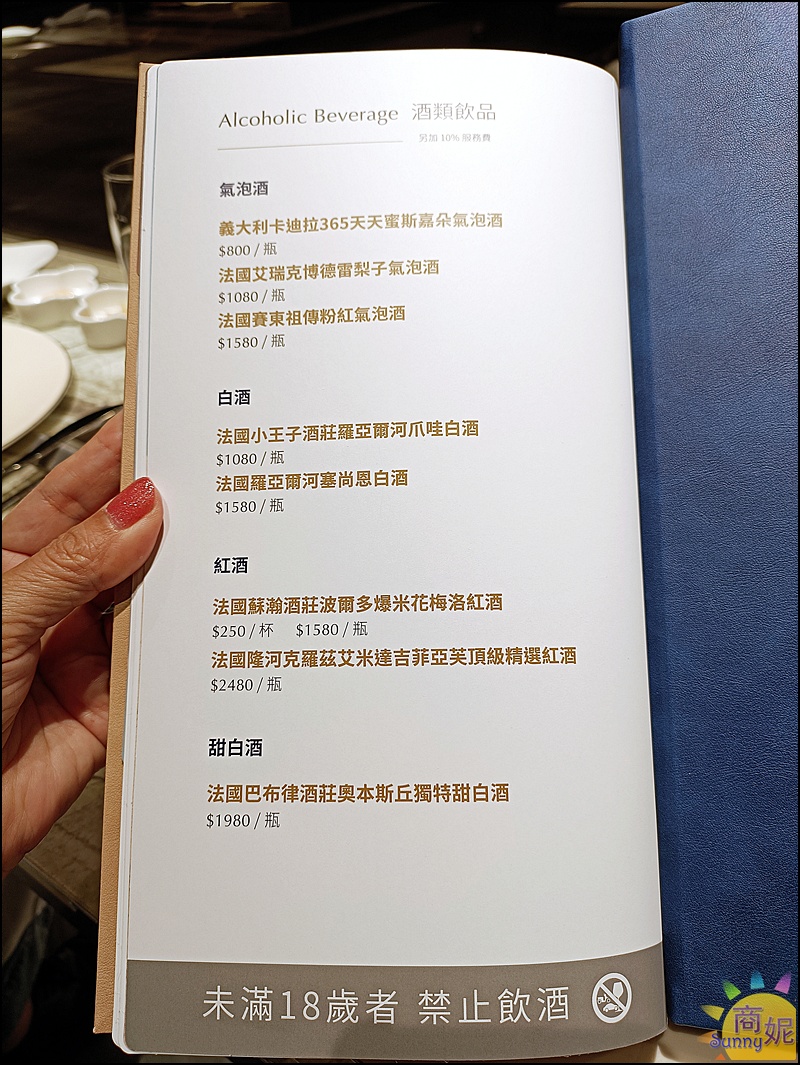 Alcoholic Beverage 酒類飲品
另加 10% 服務費
氣泡酒
義大利卡迪拉365天天蜜斯嘉朵氣泡酒
$800 / 瓶
法國艾瑞克博德雷梨子氣泡酒
$1080 / 瓶
法國賽東祖傳粉紅氣泡酒
$1580 / 瓶
白酒
法國小王子酒莊羅亞爾河爪哇白酒
$1080 / 瓶
法國羅亞爾河塞尚恩白酒
$1580 / 瓶
紅酒
法國蘇瀚酒莊波爾多爆米花梅洛紅酒
$250 / 杯 $1580 / 瓶
法國隆河克羅茲艾米達吉菲亞芙頂級精選紅酒
$2480 / 瓶
甜白酒
法國巴布律酒莊奧本斯丘獨特甜白酒
$1980 / 瓶
未滿18歲者 禁止飲酒
商妮
Sunny